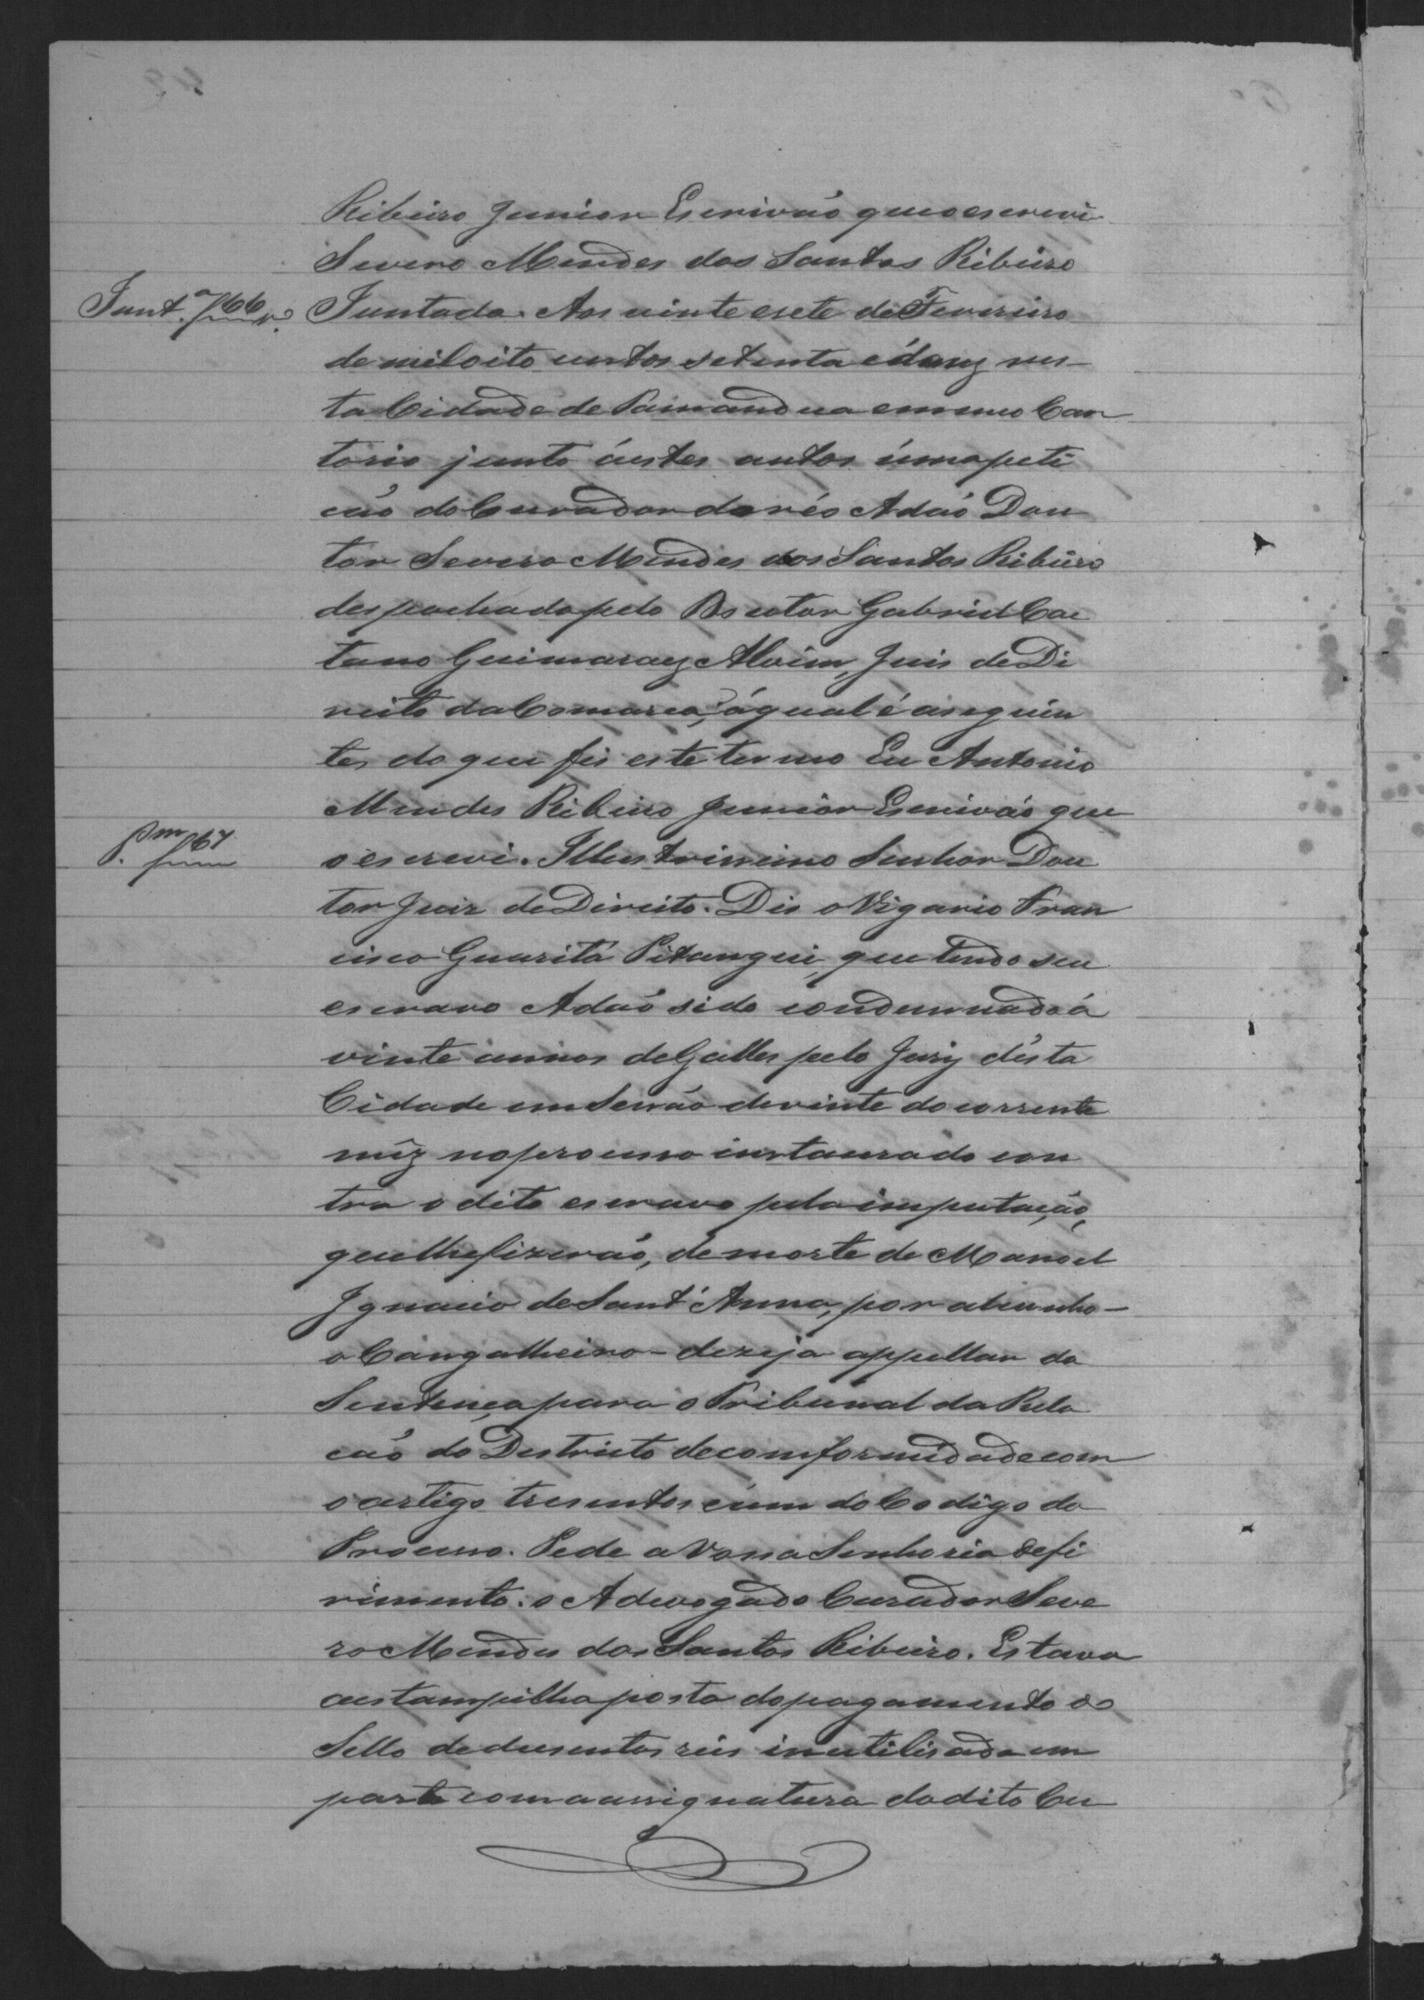 Ribeiro Junior Escrivão que o escrevi
Severo Mendes dos Santos Ribeiro
Junt.ª f 66
Juntada. Aos vinte e sete de Fevereiro
de mil oito centos setenta e dous nes-
ta Cidade de Parnandua em meo Car
torio junto á estes autos úma peti
cão do Curador do réo Adaó Dou
tor Severo Mendes dos Santos Ribeiro
despachada pelo Doutor Gabriel Cae
tano Guimaraes Alvim, Juis de Di
reito da Comarca, á qual é a seguin
te, do que fis este termo Eu Antonio
Mendes Ribeiro Junior Escrivão que
P.m f 67
o escrevi. Illustrissimo Senhor Dou
tor Juiz de Direito. Dis o Vigario Fran
cisco Guaritá Pitangui, que tendo seu
escravo Adaó sido condemnado á
vinte annos de Galles pelo Jury désta
Cidade em Sessão de vinte do corrente
mêz no processo instaurado con
tra o dito escravo pela imputação,
que lhe fizerão, de morte de Manoel
Ignacio de Sant'Anna, por alcunha-
o Cangalheiro - dezeja appellar da
Sentença para o Tribunal da Rela
cão do Destricto de comformidade com
o artigo tresentos e um do Codigo do
Processo. Pede a Vossa Senhoria defi
rimento. o Advogado Curador Seve
ro Mendes dos Santos Ribeiro. Estava
a estampilha posta do pagamento do
Sello de dusentos reis inutilisada em
parte com a assignatura do dito Cu